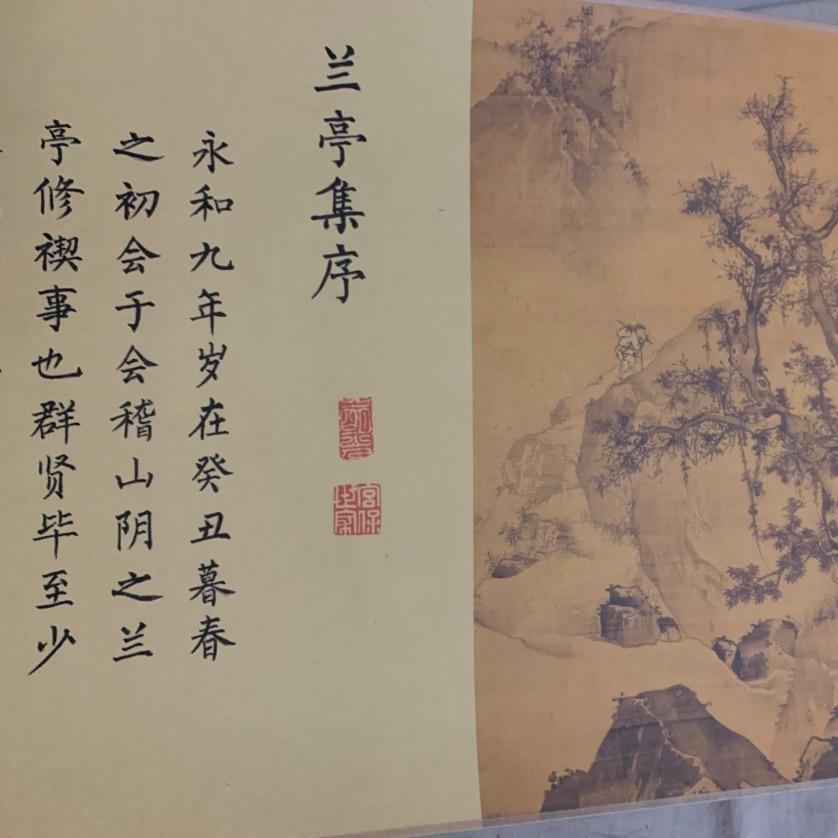 兰亭集序
永和九年岁在癸丑暮春
之初会于会稽山阴之兰
亭修禊事也群贤毕至少